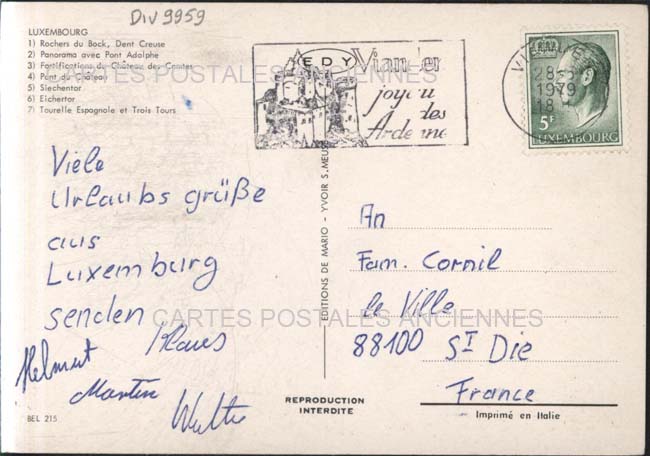 Div 9959
LUXEMBOURG
1) Rochers du Bock, Dent Creuse
2) Panorama avec Pont Adolphe
3) Fortifications du Château des Comtes
4) Pont du Château
5) Siechentor
6) Eichertor
7) Tourelle Espagnole et Trois Tours
EDY Vianden
joyau
des
Ardenne
28
1979
18
5F
LUXEMBOURG
CARTES POSTALES ANCIENNES
Viele
Urlaubs grüße
aus
Luxemburg
senden
Klaus
Helmut
Martin
Walter
EDITIONS DE MARIO - YVOIR S. MEUSE
An
Fam. Cornil
le Ville
88100 St Die
France
CARTES POSTALES ANCIENNES
REPRODUCTION
INTERDITE
Imprimé en Italie
BEL 215